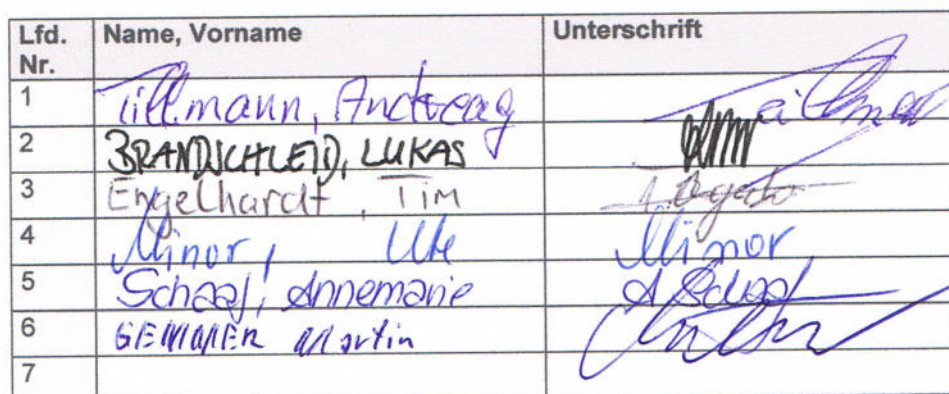 Lfd. Nr. Name, Vorname Unterschrift
1 Tillmann, Andreas
2 BRANDSCHEID, LUKAS
3 Engelhardt, Tim
4 Minor, Ute Minor
5 Schaaf, Annemarie A Schaaf
6 GEMMER Martin
7